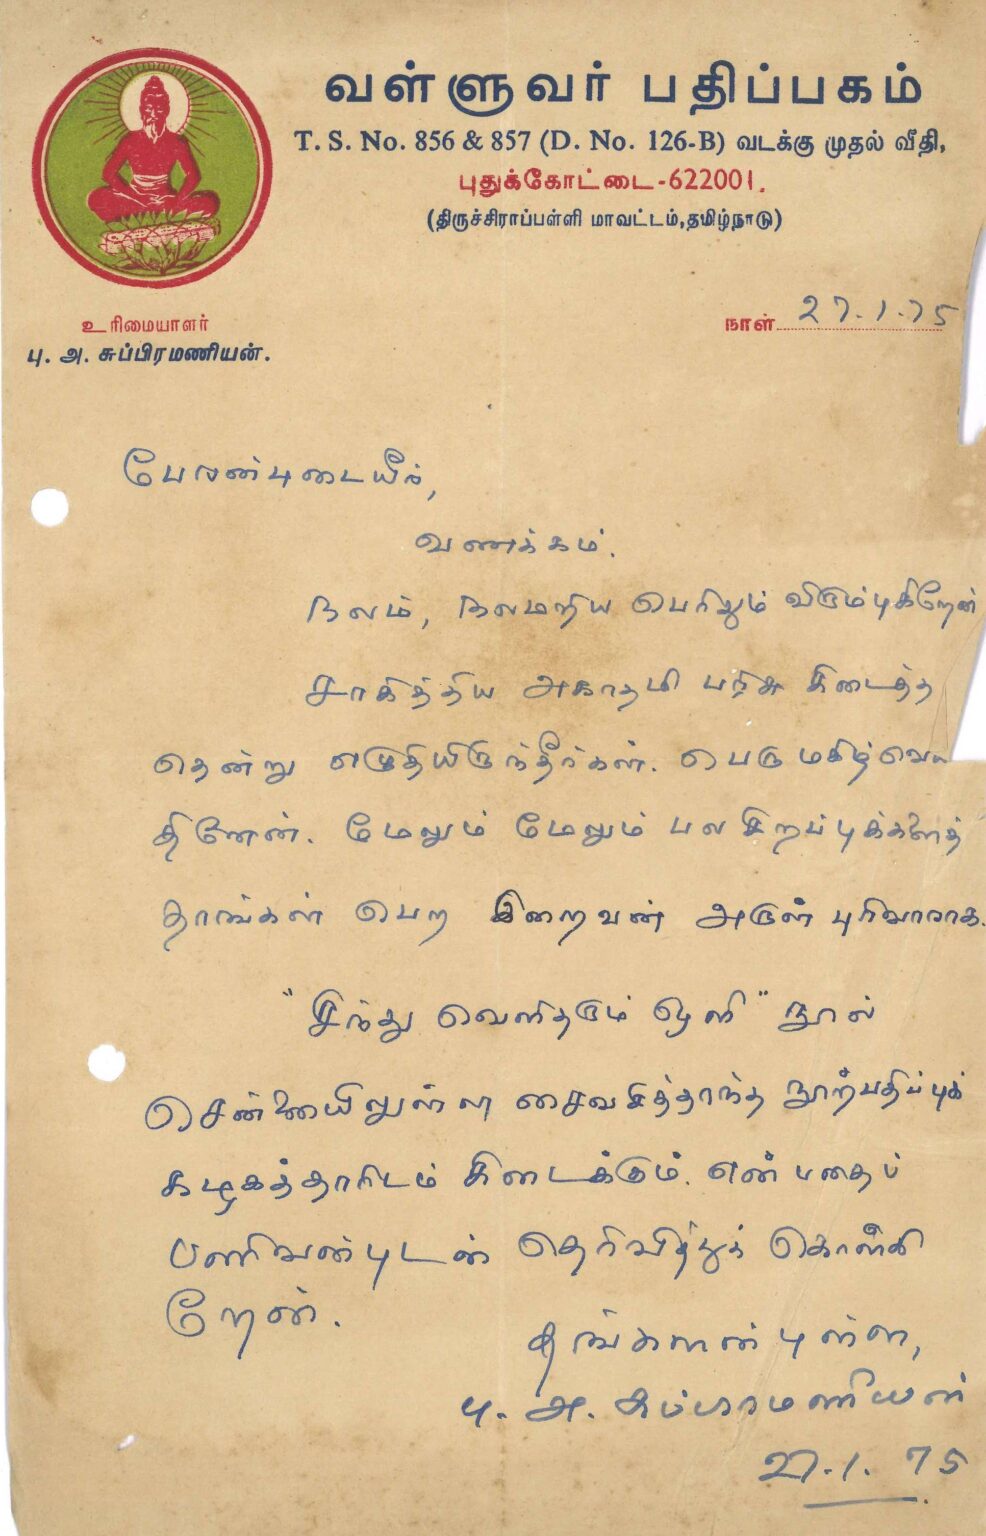 வள்ளுவர் பதிப்பகம்
T. S. No. 856 & 857 (D. No. 126-B) வடக்கு முதல் வீதி,
புதுக்கோட்டை-622001.
(திருச்சிராப்பள்ளி மாவட்டம்,தமிழ்நாடு)
உரிமையாளர்
பு. அ. சுப்பிரமணியன்.
நாள் 27.1.75
பேரன்புடையீர்,
வணக்கம்.
நலம், நலமறிய பெரிதும் விரும்புகிறேன்
சாகித்திய அகாதமி பரிசு கிடைத்த
தென்று எழுதியிருந்தீர்கள். பெருமகிழ்வெய்
தினேன். மேலும் மேலும் பல சிறப்புக்களைத்
தாங்கள் பெற இறைவன் அருள் புரிவாராக.
"சிந்து வெளிதரும் ஒளி" நூல்
சென்னையிலுள்ள சைவசித்தாந்த நூற்பதிப்புக்
கழகத்தாரிடம் கிடைக்கும். என்பதைப்
பணிவன்புடன் தெரிவித்துக் கொள்கி
றேன்.
தங்களன்புள்ள,
பு. அ. சுப்பிரமணியன்
27.1.75